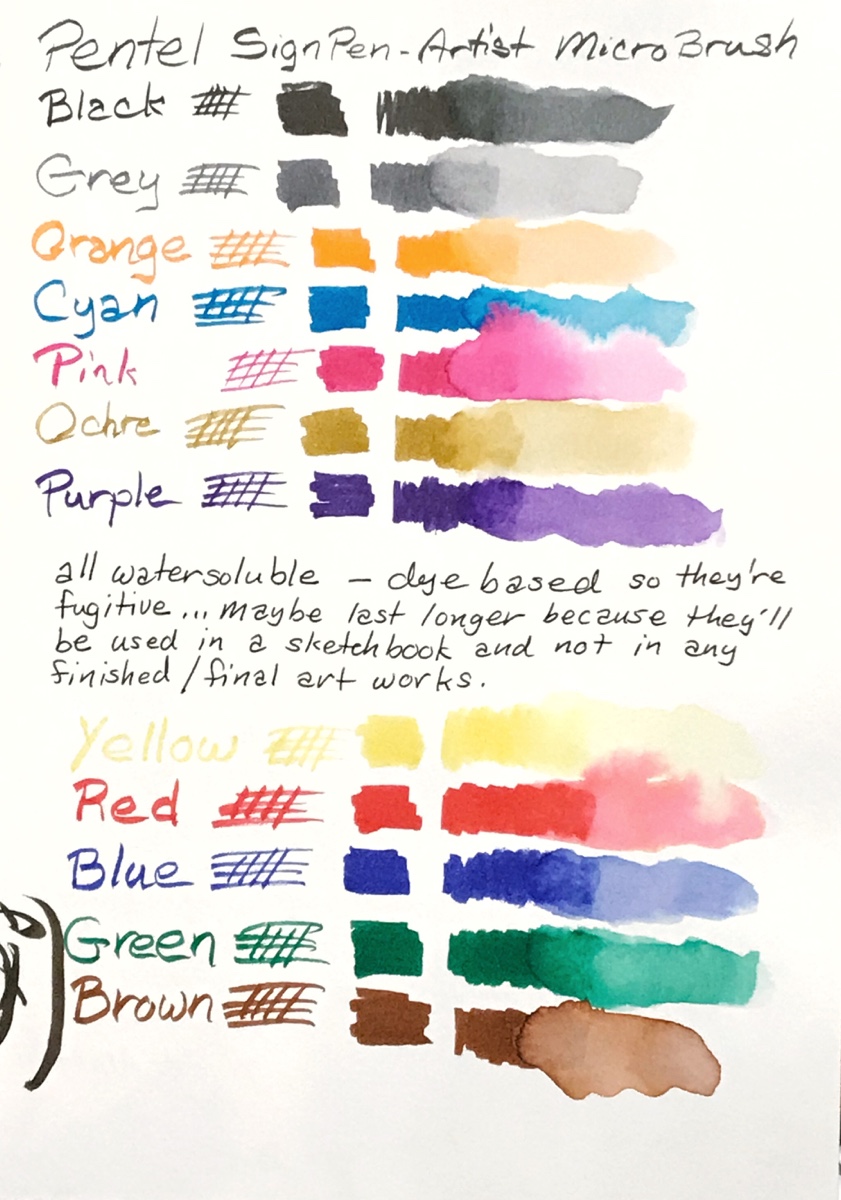 Pentel SignPen-Artist MicroBrush
Black
Grey
Orange
Cyan
Pink
Ochre
Purple
all watersoluble — dye based so they're
fugitive... maybe last longer because they'll
be used in a sketchbook and not in any
finished/final art works.
Yellow
Red
Blue
Green
Brown